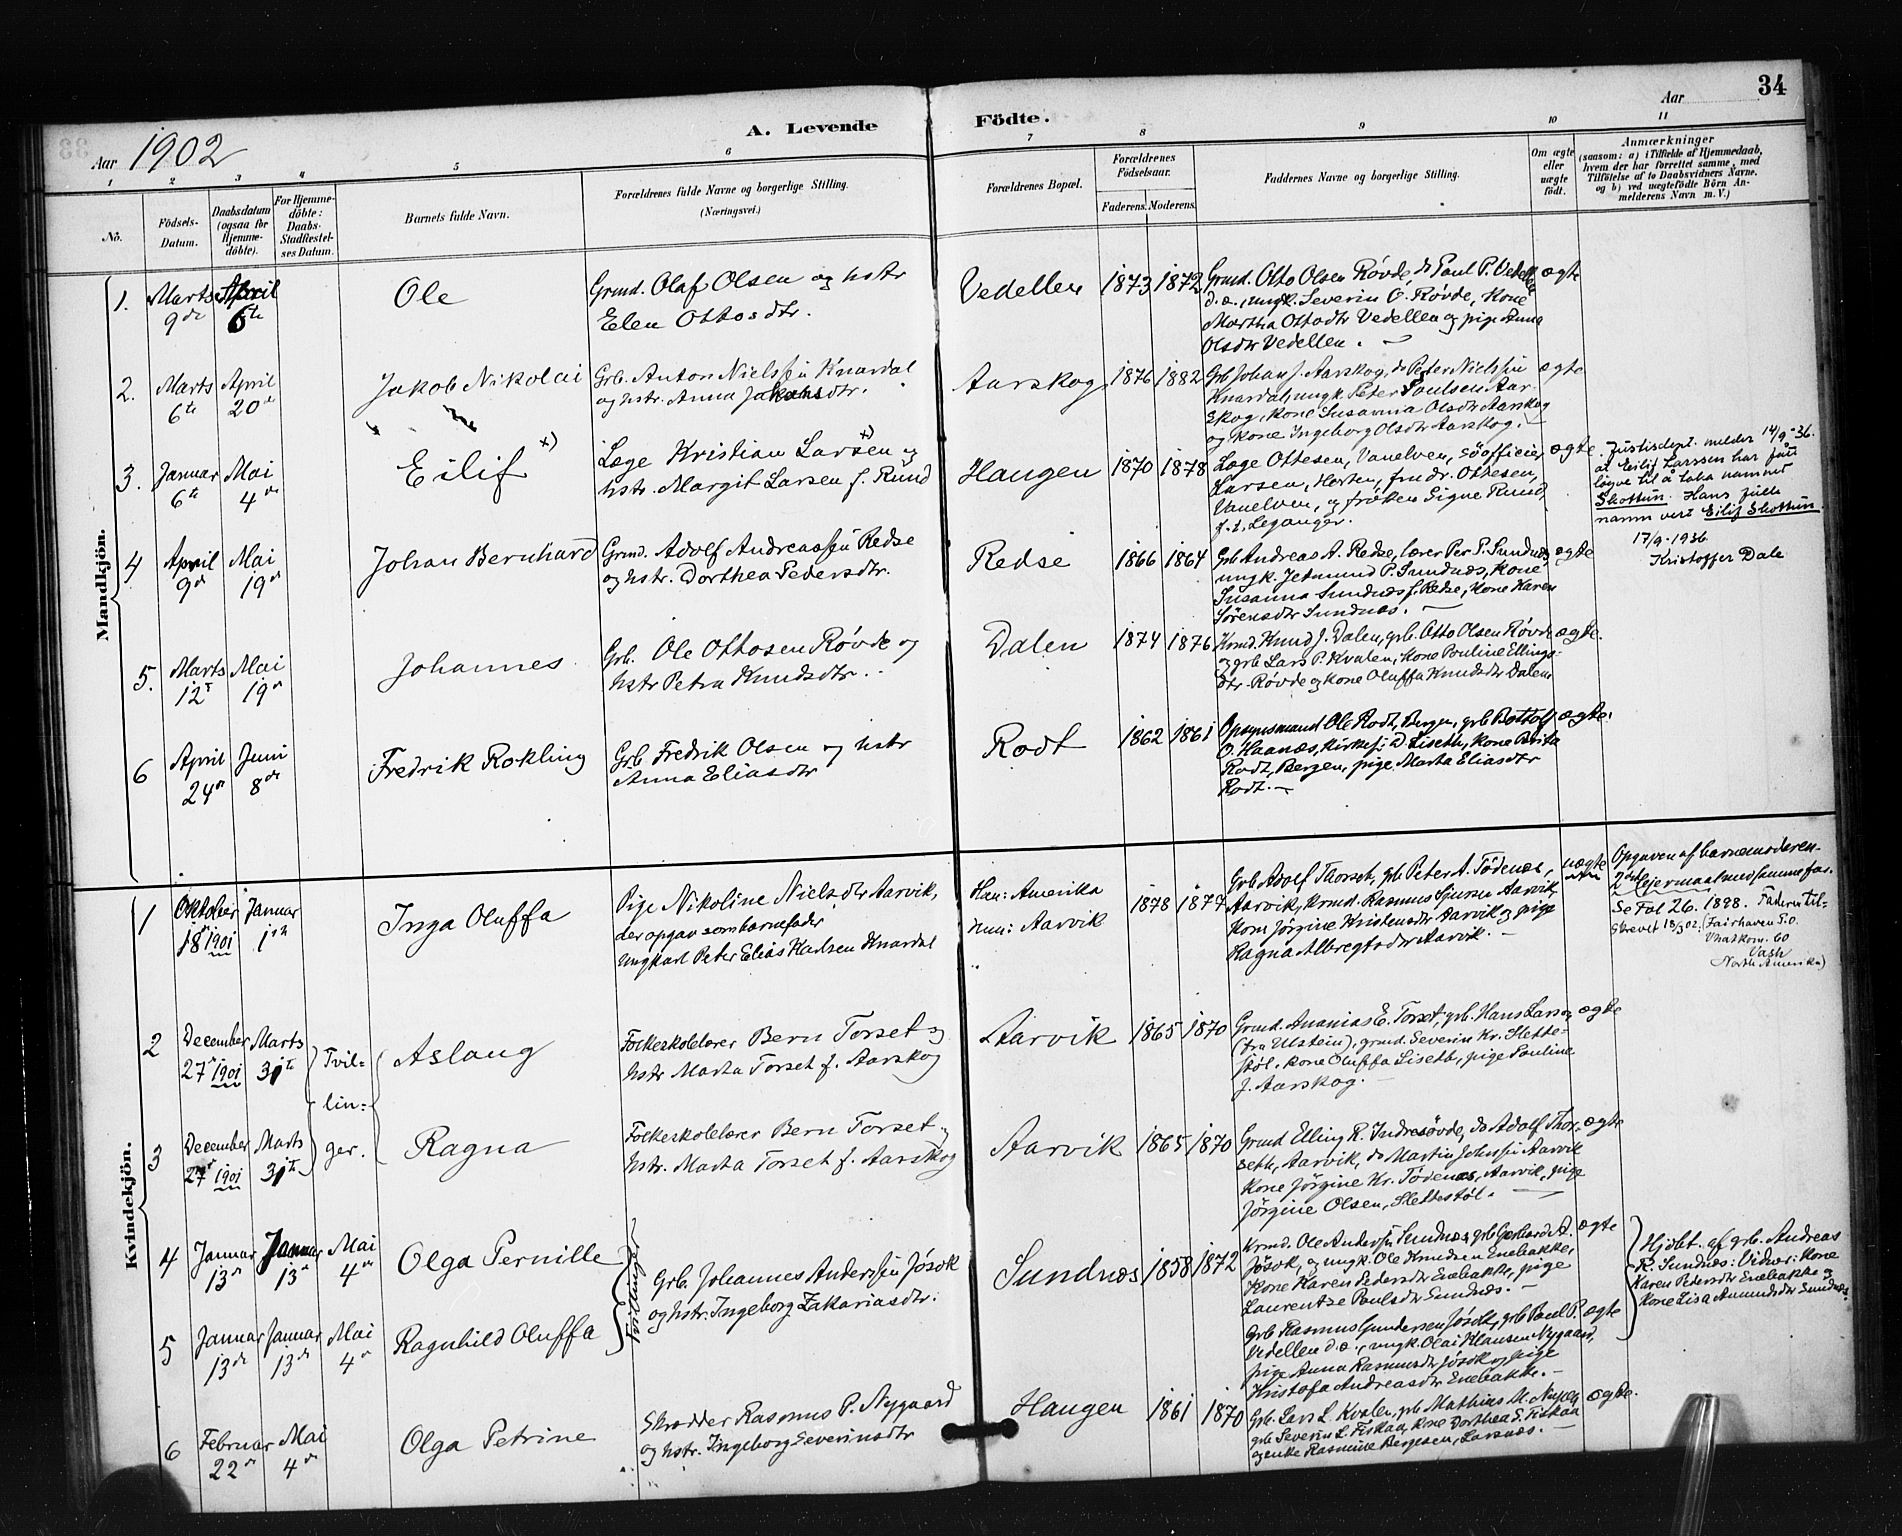 34
Aar 1902
A. Levende Födte.
Aar
1 2 3 4 5 6 7 8 9 10 11
Nö.
Födsels-Datum.
Daabsdatum (ogsaa for Hjemmedöbte).
For Hjemmedöbte: Daabs-Stadfæstelses Datum.
Barnets fulde Navn.
Forældrenes fulde Navne og borgerlige Stilling. (Næringsvei.)
Forældrenes Bopæl.
Forældrenes Födselsaar.
Faderens. Moderens.
Faddernes Navne og borgerlige Stilling.
Om ægte eller uægte födt.
Anmærkninger
(saasom: a) i Tilfælde af Hjemmedaab,
hvem der har forrettet samme, med
Tilföielse af to Daabsvidners Navne.
og b) ved uægtefödte Börn An-
melderens Navn m. V.)
Mandkjön.
1. Marts 9de April 6te
Ole
Grmd. Olaf Olsen og hstr
Elen Ottosdtr.
Vedellen 1873 1872
Grmd. Otto Olsen Røvde, do Paul P. Vedellen
d.æ., ungk. Severin O. Røvde, Kone
Martha Ottodtr Vedellen og pige Anna
Olsdtr Vedellen. —
ægte
2. Marts 6te April 20de
Jakob Nikolai
Grb. Anton Nielssøn Knardal
og hstr. Anna Jakobsdtr.
Aarskog 1876 1882
Grb Johan J. Aarskog, do Peter Nielssøn
Knardal, ungk. Peter Poulsen Aar-
skog, kone Susanna Olsdtr Aarskog
og kone Ingeborg Olsdtr Aarskog. —
ægte
3. Januar 6te Mai 4de
Eilif x)
Læge Kristian Larsen x) og
hstr. Margit Larsen f. Rund
Haugen 1870 1878
Læge Ottesen, Vanelven, søofficier
Larsen, Horten, frudr. Ottesen,
Vanelven, og frøken Signe Rund,
f.t. Leganger.
ægte
Justisdept. melder 14/9-36.
at Eilif Larssen har fått
løyve til å taka namnet
Skottun. Hans fulle
namn vert Eilif Skottun.
17/9-1936
Kristoffer Dale
4 April 9de Mai 19de
Johan Bernhard
Grmd. Adolf Andreassøn Redse
og hstr. Dorthea Pedersdtr.
Redse 1866 1864
Grb Andreas A. Redse, lærer Per P. Sundnæs,
ungk. Jetmund P. Sundnæs, Kone
Susanna Sundnæs f. Redse, Kone Karen
Sørensdtr Sundnæs. —
ægte
5. Marts 12te Mai 19de
Johannes
Grb. Ole Ottosen Røvde og
hstr Petra Knudsdtr.
Dalen 1874 1876
Krmd. Knud J. Dalen, grb. Otto Olsen Røvde
og grb Lars P. Kvalen, Kone Pauline Ellings-
dtr. Røvde og kone Oluffa Knudsdtr Dalen
ægte.
6 April 24de Juni 8de
Fredrik Rokling
Grb Fredrik Olsen og hstr
Anna Eliasdtr
Rodt 1862 1861
Opsynsmand Ole Rodt, Bergen, grb Bottolf
O. Haanæs, Kirkes: D. Liseth, Kone Brita
Rodt, Bergen, pige Marta Eliasdtr
Rodt. —
ægte.
Kvindekjön.
1 Oktober 18de 1901 Januar 1ste
Inga Oluffa
Pige Nikoline Nielsdtr Aarvik,
der opgav som barnefader
ungkarl Peter Elias Karlsen Knardal
Han: Amerika
hun: Aarvik
1878 1877
Grb Adolf Thorset, grb Peter A. Tødenæs,
Aarvik, Krmd. Rasmus Sjursen Aarvik
Kone Jørgine Kristensdtr Aarvik og pige
Ragna Albregtsdtr Aarvik. —
uægte
Opgaven af barnemoderen.
2det lejermaal med samme far.
Se Fol 26. 1898. Faderen til-
skrevet 18/3 02. (Fairhaven P.O.
Whatkom. Co
Wash
North Amerika)
2 December 27de 1901 Marts 31te
Tvil-
lin-
ger.
Aslaug
Folkeskolelærer Bern Torset og
hstr Marta Torset f. Aarskog
Aarvik 1865 1870
Grmd. Ananias E. Torset, grb. Hans Larsen
(fra Ulstein), grmd. Severin Kr. Slette-
støl, kone Oluffa Liseth, pige Pauline
J. Aarskog. —
ægte
3 December 27de 1901 Marts 31te
Ragna
Folkeskolelærer Bern Torset og
hstr. Marta Torset f. Aarskog
Aarvik 1865 1870
Grmd Elling R. Indresøvde, do Adolf Thor-
seth, Aarvik, do Martin Johnssøn Aarvik
Kone Jørgine Kr. Tødenæs, Aarvik, pige
Jørgine Olsen, Slettestøl. —
ægte
4 Januar 13de Januar 13de Mai 4de
Olga Pernille
Tvillinger
Grb. Johannes Anderssøn Jøsok
og hstr. Ingeborg Zakariasdtr.
Sundnæs 1858 1872
Krmd. Ole Anderssøn Sundnæs, grb Gerhard A.
Jøsok, og ungk. Ole Knudsen Enebakke,
Kone Karen Pedersdtr Enebakke, pige
Laurentse Paulsdtr Sundnæs. —
ægte
Hjdbt. af grb. Andreas
R. Sundnæs: Vidner: Kone
Karen Pedersdtr Enebakke og
Kone Lisa Amundsdtr Sundnæs.
5 Januar 13de Januar 13de Mai 4de
Ragnhild Oluffa
Grb Rasmus Gundersen Jøsok, grb Paul P.
Vedellen d.æ., ungk. Olai Klausen Nygaard,
pige Anna Rasmusdtr Jøsok og pige
Kristofa Andreasdtr Enebakke. —
ægte
6 Februar 22de Mai 4de
Olga Petrine
Skrædder Rasmus P. Nygaard
og hstr. Ingeborg Severinsdtr
Haugen 1861 1870
Grb. Lars L. Kvalen, grb Mathias M.
grb Severin L. Fiskaa, Kone Dorthea S. Fiskaa
og enke Rasmine Bergesen, Larsnæs. —
ægte.